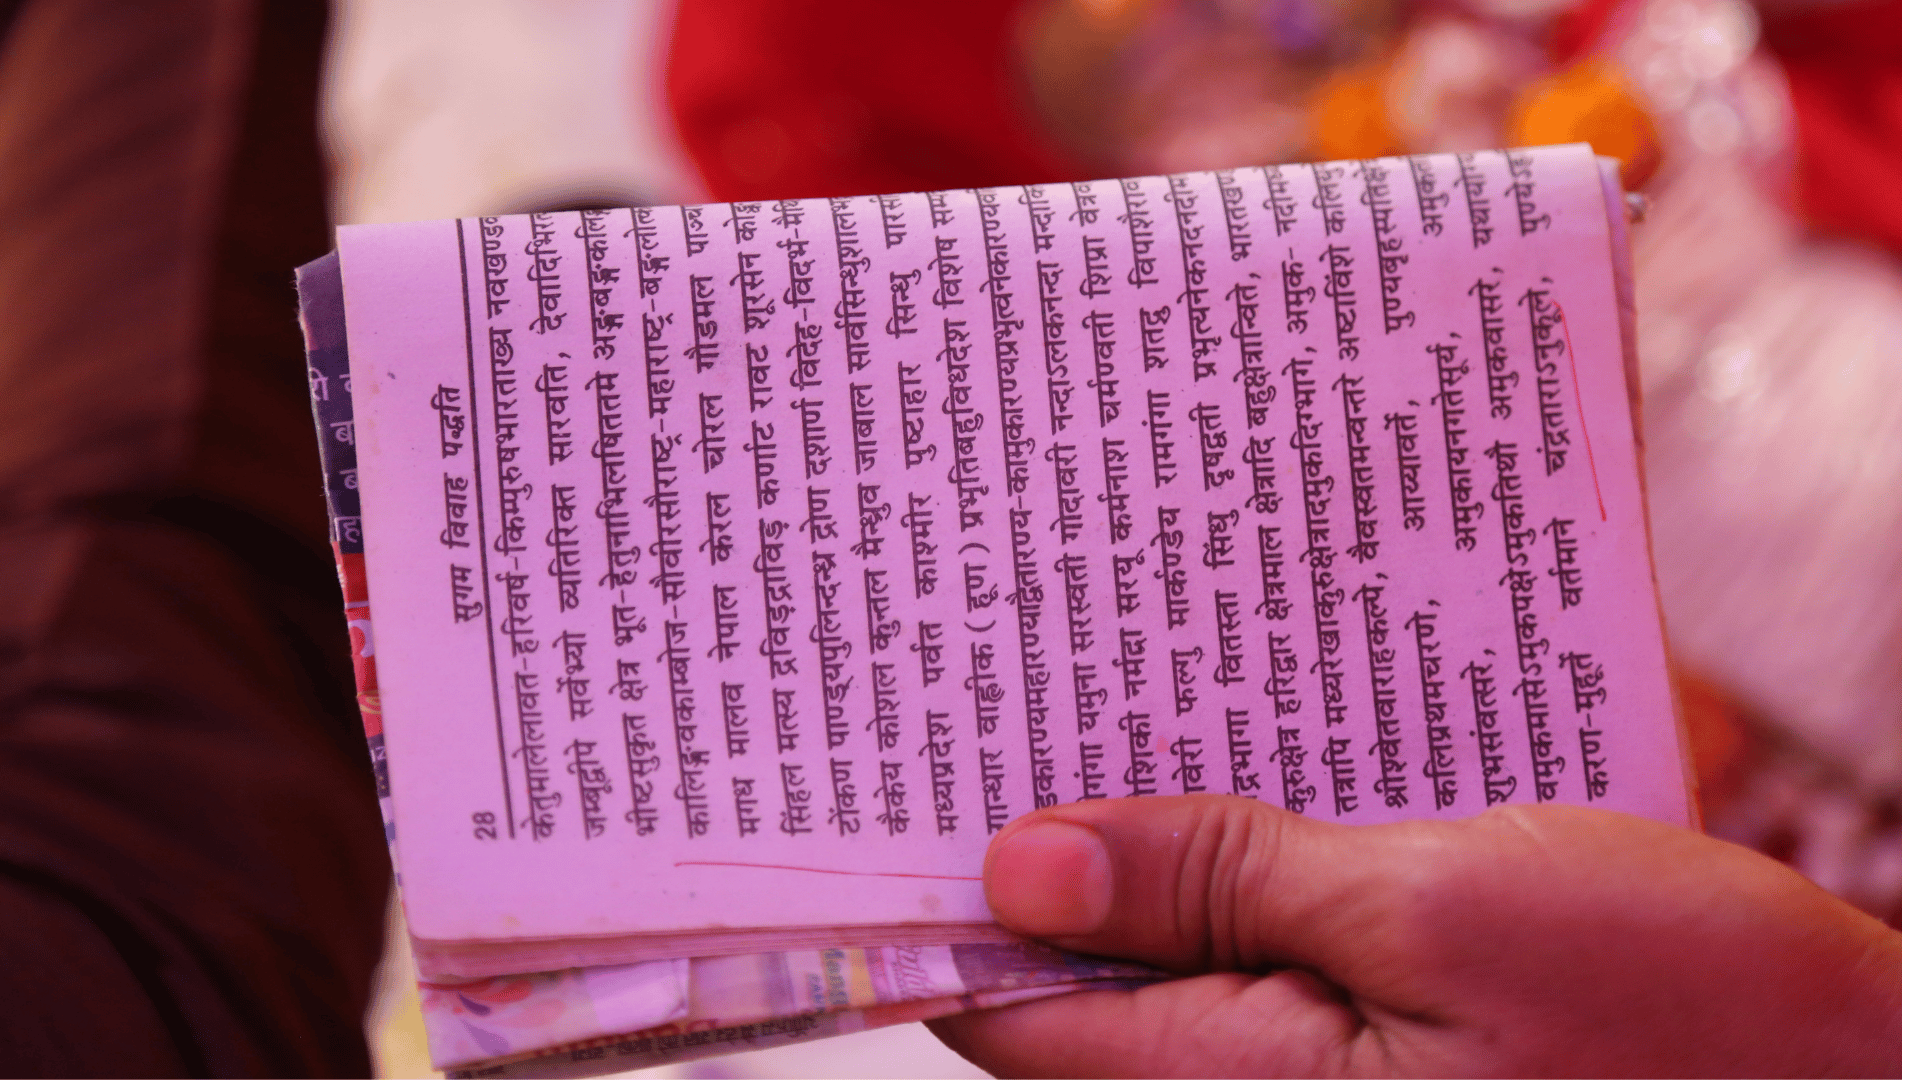 28 सुगम विवाह पद्धति
केतुमालेलावत-हरिवर्ष-किम्पुरुषभारताख्य नवखण्ड
जम्बूद्वीपे सर्वेभ्यो व्यतिरिक्त सारवति, देवादिभिरा
भीष्टसुकृत क्षेत्र भूत-हेतुनाभिलषिततमे अङ्गबङ्गकलि
कालिङ्गककाम्बोज-सौवीरसौराष्ट्र-महाराष्ट्र-बङ्गलोत्क
मगध मालव नेपाल केरल चोरल गौडमल पाञ्चा
सिंहल मत्स्य द्रविड़द्राविड़ कर्णाट रावट शूरसेन कोङ्क
टोंकण पाण्ड्यपुलिन्दन्ध्र द्रोण दशार्ण विदेह-विदर्भ-मैथि
कैकेय कोशल कुन्तल मैन्धुव जाबाल सार्वसिन्धुशालभ
मध्यप्रदेश पर्वत काश्मीर पुष्टाहार सिन्धु पारसी
गान्धार वाह्लीक (हूण) प्रभृतिबहुविधदेश विशेष सम
डकारण्यमहारण्यद्वैतारण्य-कामुकारण्यप्रभृत्यनेकारण्यव
गंगा यमुना सरस्वती गोदावरी नन्दाऽलकनन्दा मन्दाकि
शिकी नर्मदा सरयू कर्मनाशा चर्मण्वती शिप्रा वेत्रव
वेरी फल्गु मार्कण्डेय रामगंगा शतद्रु विपाशैराव
द्रभागा वितस्ता सिंधु दृषद्वती प्रभृत्यनेकनदनदीम
कुरुक्षेत्र हरिद्वार क्षेत्रमाल क्षेत्रादि बहुक्षेत्रान्विते, भारतख
तत्रापि मध्यरेखाकुरुक्षेत्रादमुकदिग्भागे, अमुक- नदीमध्
श्रीश्वेतवाराहकल्पे, वैवस्वतमन्वन्तरे अष्टाविंशे कलियु
कलिप्रथमचरणे, आर्य्यावर्ते, पुण्यबृहस्पतिक्षे
शुभसंवत्सरे, अमुकायनगतेसूर्य, अमुकत
वमुकमासेऽमुकपक्षेऽमुकतिथौ अमुकवासरे, यथायो
करण-मुहूर्ते वर्तमाने चंद्रताराऽनुकूले, पुण्येऽह